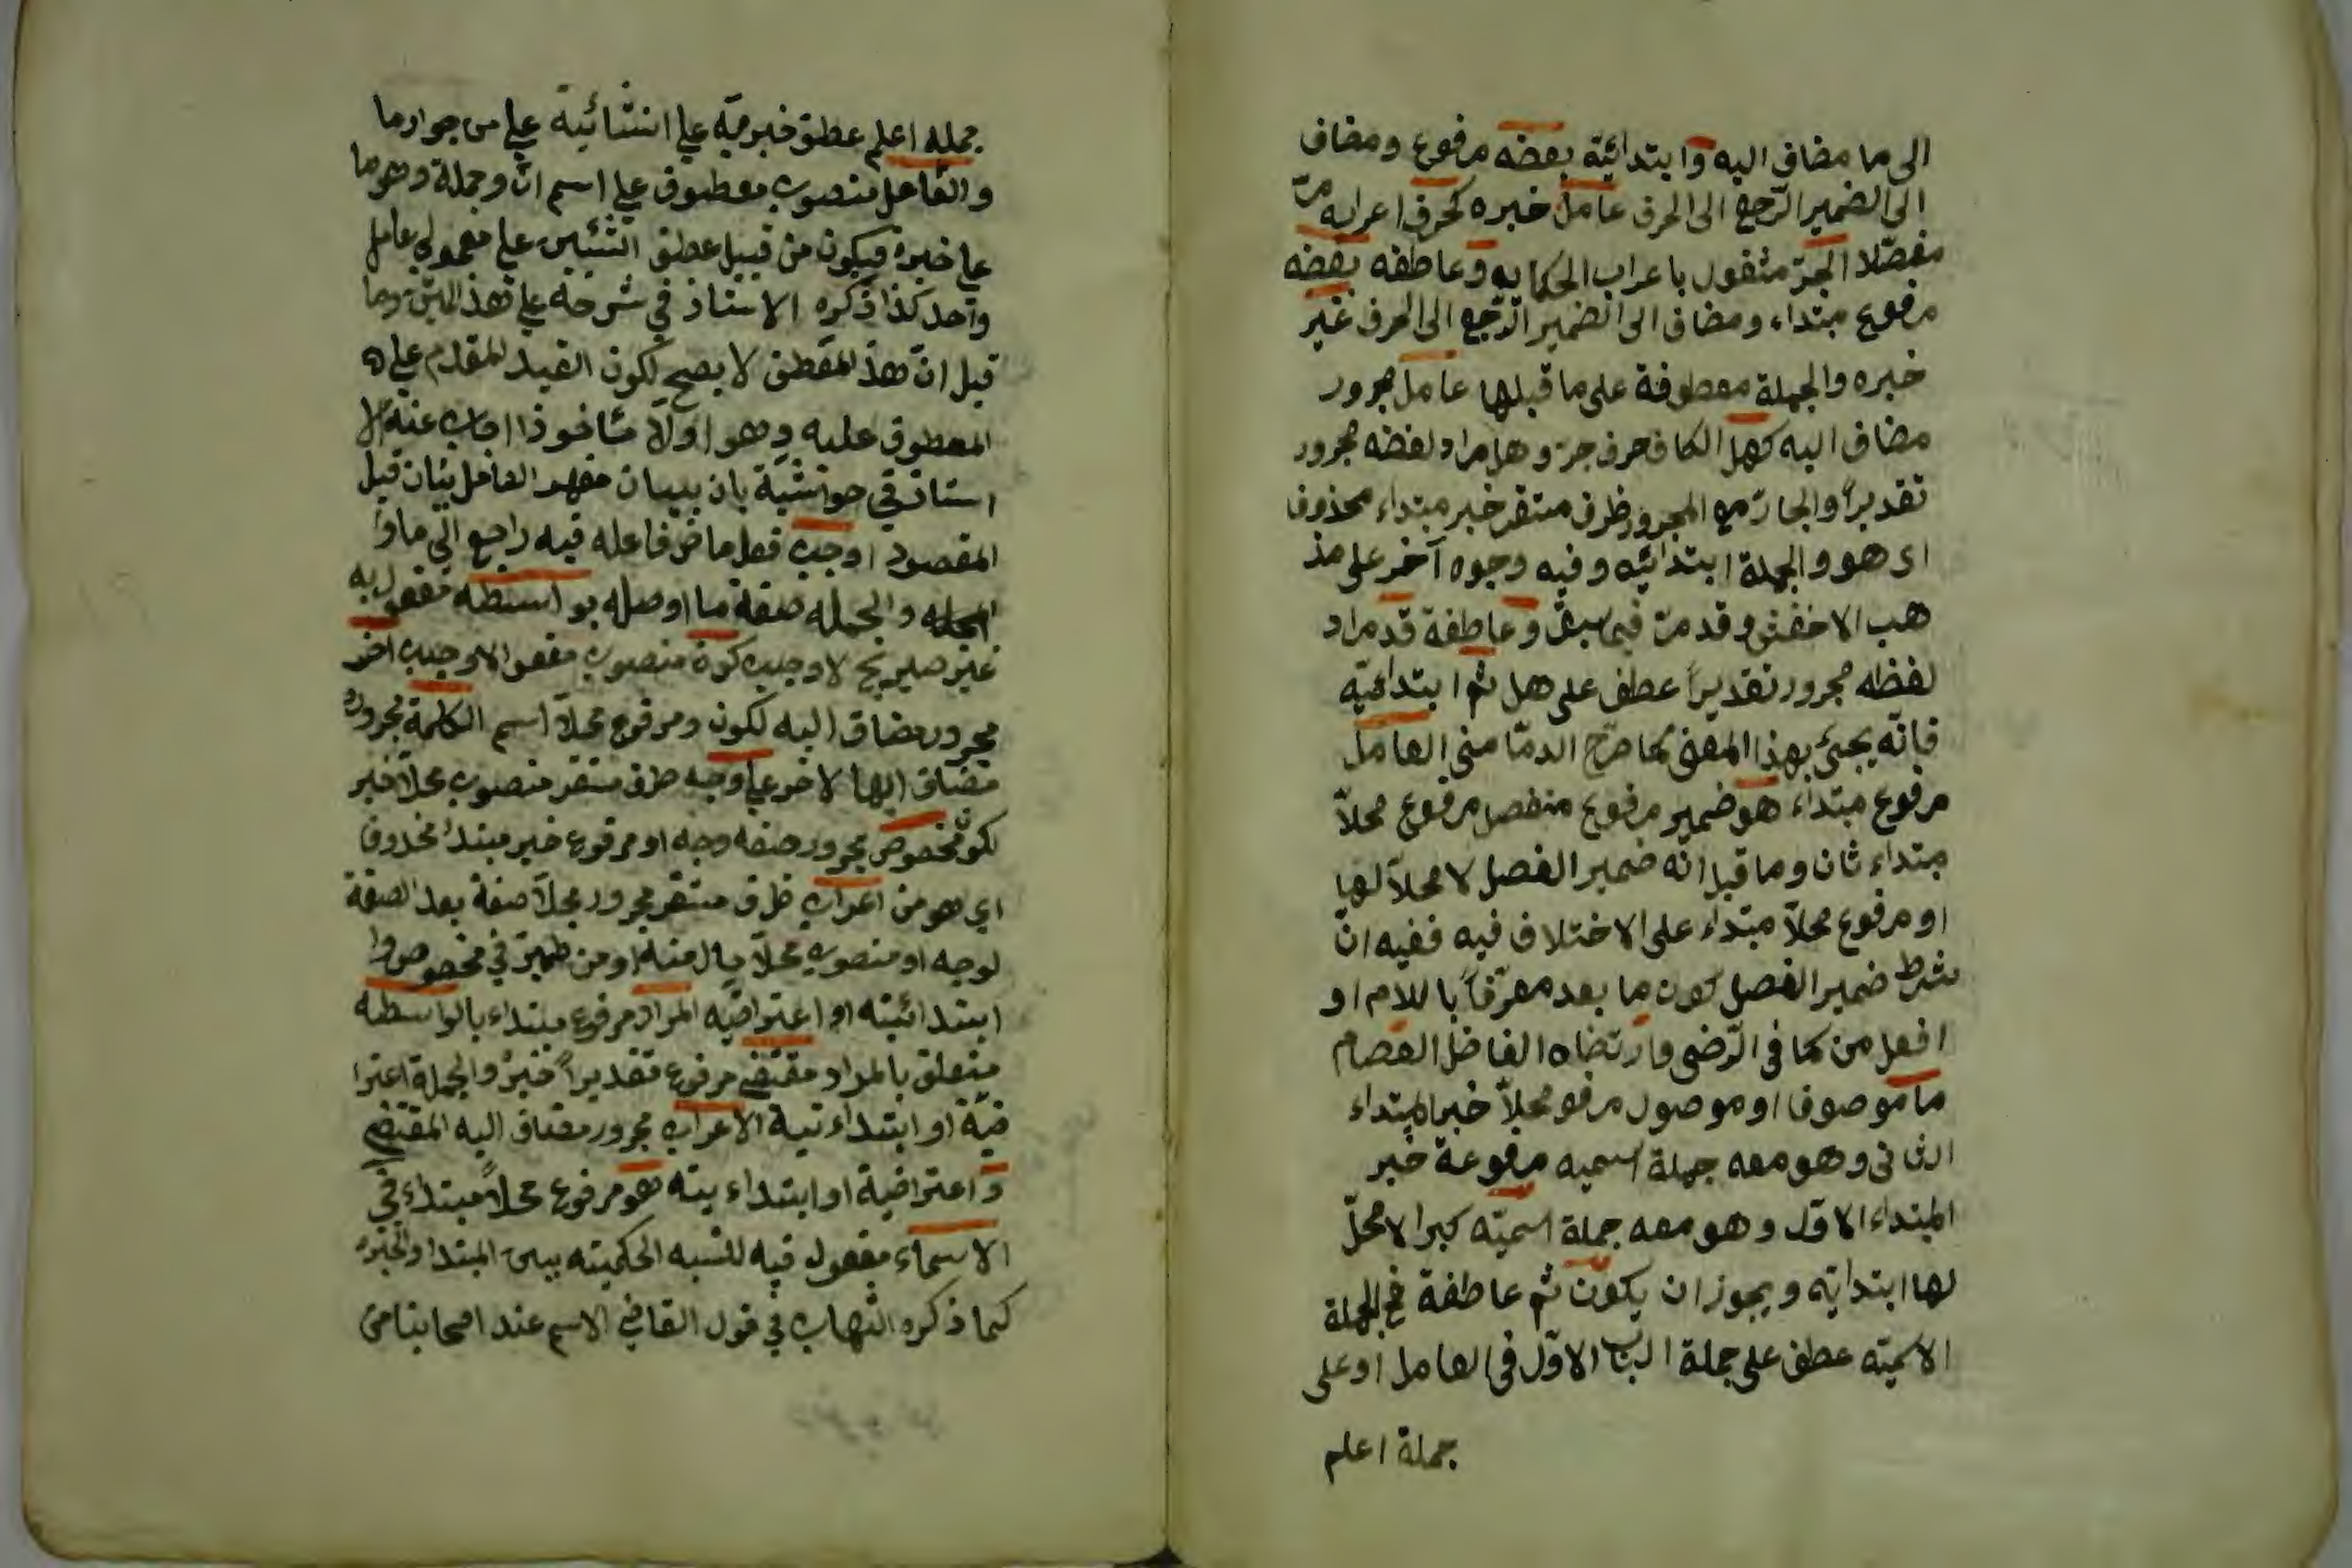 الى ما مضاف اليه وابتدائيّة بعضه مرفوع ومضاف
الى الضمير الرّجع الى الحرف عامل خبره كحرف اعرابه مرّ
مفصّلا الجرّ مثقول باعراب الحكايه وعاطفه بعضه
مرفوع مبتداء ومضاف الى الضمير الرّجع الى الحرف غير
خبره والجملة معطوفة على ما قبلها عامل مجرور
مضاف اليه كهل الكاف حرف جرّ وهل مراد لفظه مجرور
تقديراً والجارّ مع المجرور ظرف مستقر خبر مبتداء محذوف
اى هو والجملة ابتدائيّه وفيه وجوه آخر على مذ
هب الاخفش وقد مرّ فيما سبق وعاطفة قد مراد
لفظه مجرور تقديراً عطف على هل ثم ابتدائيّة
فانّه يجئ بهذا المعنى كما صرّح الدمّامنى العامل
مرفوع مبتداء هو ضمير مرفوع منفصل مرفوع محلاّ
مبتداء ثان وما قيل انّه ضمير الفصل لا محلاّ لها
او مرفوع محلاّ مبتداء على الاختلاف فيه ففيه انّ
شرط ضمير الفصل كون ما بعد معرّفاً باللام او
افعل من كما فى الرّضى وارتضاه الفاضل العصام
ما موصوفا او موصول مرفو محلاّ خبر المبتداء
الثانى وهو معه جملة اسميه مرفوعة خبر
المبتداء الاوّل وهو معه جملة اسميّه كبرا لا محلّ
لها ابتدايّه ويجوز ان يكون ثم عاطفة فح الجملة
الاسميّه عطف على جملة الباب الاوّل فى العامل او على
جملة اعلم
جمله اعلم عطف خبريّه على انشائيّة على من جواز ما
والفاعل منصوب معطوف على اسم انّ وجملة وهو ما
على خبره فيكون من قبيل عطف الشيئين على معمولى عامل
واحد كذا ذكره الاستاذ في شرحه على هذ المتن وما
قيل انّ هذ المعطف لا يصح لكون القيد المقدم على
المعطوف عليه وهو اولاً مأخوذا اجاب عنه الا
ستاذ في حواشية بان بيان مفهد الفاعل بيان قبل
المقصود اوجب فعل ماض فاعله فيه راجع الى ما وا
لجمله صفة ما اوصله بواسطه مفعول به
غير صريح لاوجب كون منصوب مفعول لاوجب اخر
مجرور مضاف اليه لكون ومرفوع محلاّ اسم الكلمة مجرور
مضاف اليها لاخر على وجه ظرف مستقر منصوب محلاّ خبر
لكون مخصوص مجرور صفه وجه او مرفوع خبر مبتدا محذوف
اى هو من اعراب ظرف مستقر مجرور محلاّ صفة بعد الصفة
لوجه او منصوب محلاّ حال منه او من ضميرٍ في مخصوص وا
ابتدائيّه او اعتراضيّه المراد مرفوع مبتداء بالواسطه
متعلق بالمراد مقتضى مرفوع تقديراً خبرُ والجملة اعترا
ضيّة او ابتدائيّة الاعراب مجرور مضاف اليه المقتضى
و اعتراضية او ابتداءيته هو مرفوع محلاً مبتداء في
الاسماء مفعول فيه للنسبه الحكميّه بين المبتدا والخبر
كما ذكره الشهاب في قول القاضي الاسم عند اصحابنا من